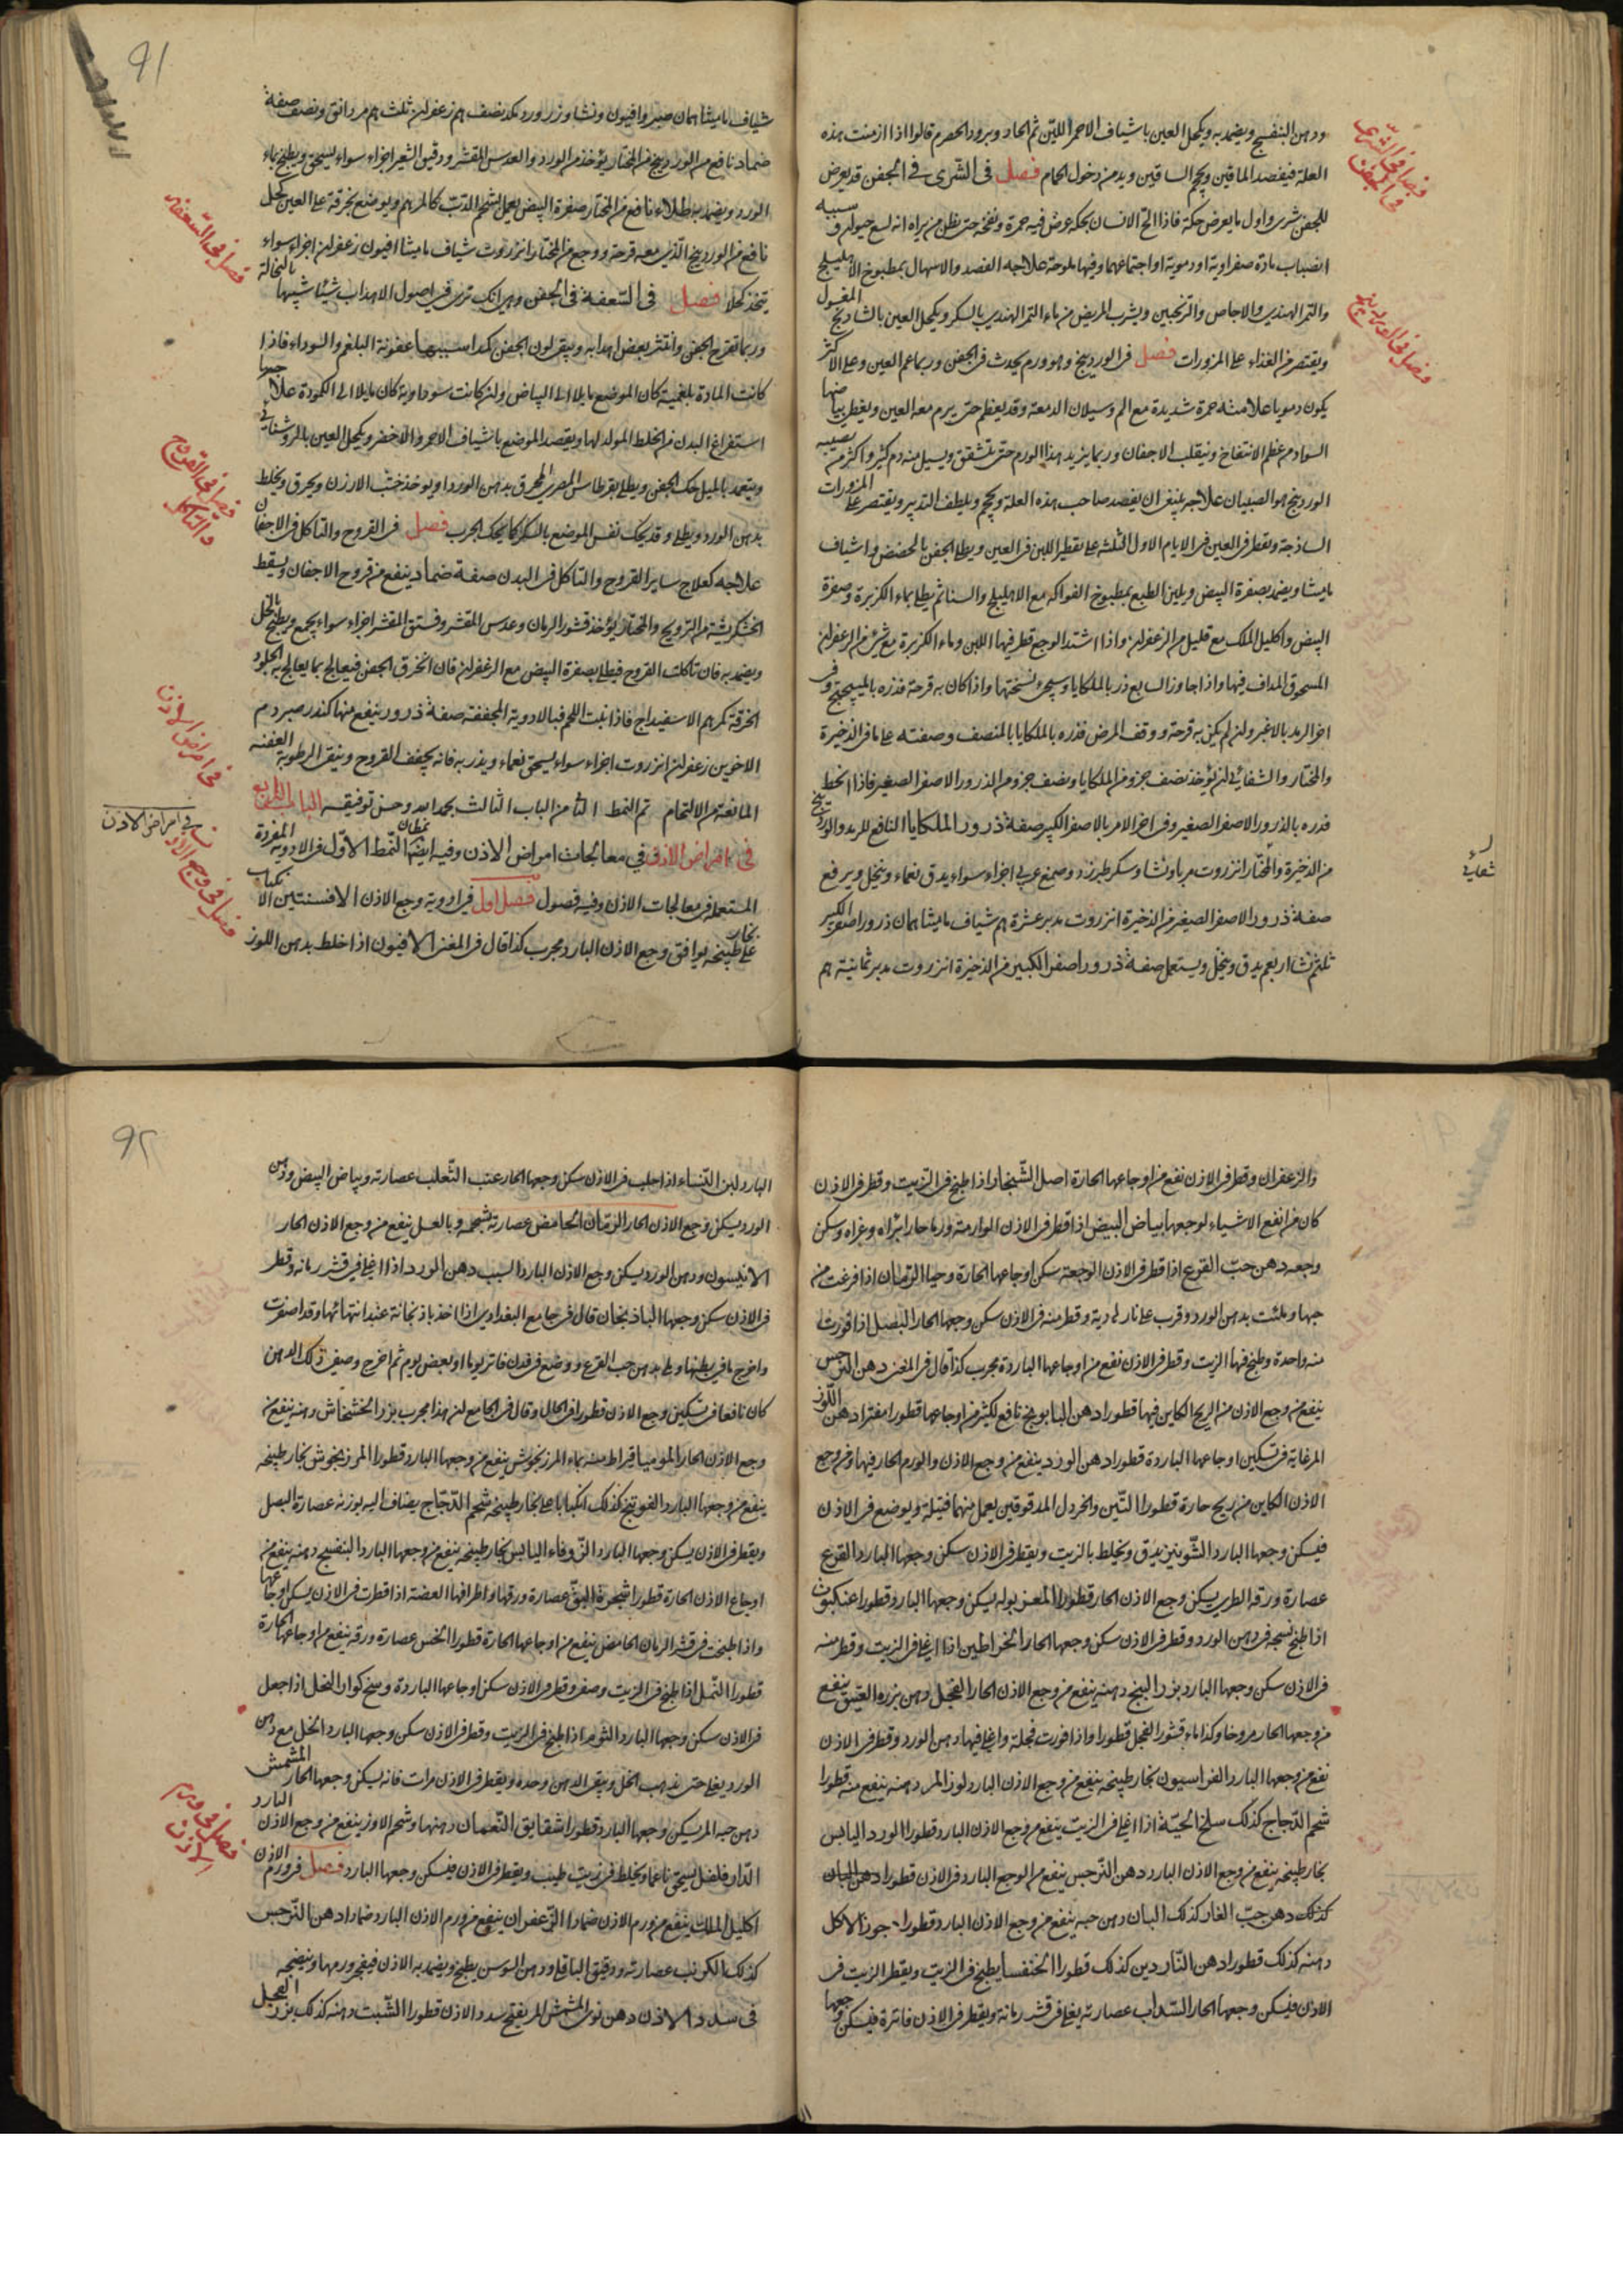 ودهن البنفسج ويضمد به ويكحل العين باشياف الاحمر اللين ثم الحاد وبرود الحصرم قالوا اذا ازمنت هذه
العلة فيفصد الماقين ويحجم الساقين ويدمن دخول الحمام فصل فى الشرى فى الجفن قد يعرض
للجفن شرى واول ما يعرض حكة فاذا الح الانسان بحكه عرض فيه حمرة ونفخة حتى يظن من يراه انه لسع حيوان وسببه
انصباب مادة صفراوية او دموية او اجتماعهما وفيها ملوحة علاجه الفصد والاسهال بمطبوخ الاهليلج
والتمر الهندى والاجاص والترنجبين ويشرب المريض من ماء التمر الهندى بالسكر ويكحل العين بالشادنج المغسول
ويقتصر من الغذاء على المزورات فصل فى الوردينج وهو ورم يحدث فى الجفن وربما عم العين وعلى الاكثر
يكون دمويا علامته حمرة شديدة مع الم وسيلان الدمعة وقد يعظم حتى يرم معه العين ويغطى بياضها
السواد من عظم الانتفاخ وينقلب الاجفان وربما يزيد هذا الورم حتى يتشقق ويسيل منه دم كثير واكثر من يصيبه
الوردينج هو الصبيان علاجه ينبغى ان يفصد صاحب هذه العلة ويحجم ويلطف التدبير ويقتصر على المزورات
الساذجة ويقطر فى العين فى الايام الاول الثلثة على تقطير اللبن فى العين ويطلى الجفن بالحضض واشياف
ماميثا ويضمد بصفرة البيض ويلين الطبع بمطبوخ الفواكه مع الاهليلج والسنا ثم يطلى بماء الكزبرة وصفرة
البيض واكليل الملك مع قليل من الزعفران واذا اشتد الوجع قطر فيها اللبن وماء الكزبرة مع شئ من الزعفران
المسحوق المداف فيها واذا جاوز السابع ذر بالملكايا وسيجئ نسختها واذا كان به قرحة فذره
اخر الرمد بالاغبر وان لم يكن به قرحة ووقف المرض فذره بالملكايا بالمنصف وصفته على ما فى الذخيرة
والمختار والشفائى ان يؤخذ نصف جزو من الملكايا ونصف جزو من الذرور الاصفر الصغير فاذا انحط
فذره بالذرور الاصفر الصغير وفى اخر الامر بالاصفر الكبير صفة ذرور الملكايا النافع للرمد والوردينج
من الذخيرة والمختار انزروت مربا ونشا وسكر طبرزد وصمغ عربى اجزاء سواء يدق نعماء وينخل ويرفع
صفة ذرور الاصفر الصغير من الذخيرة انزروت مدبر عشرة هم شياف ماميثا همان ذرور اصفر الكبير
ثلثهم نشا اربعهم يدق وينخل ويستعمل صفة ذرور اصفر الكبير من الذخيرة انزروت مدبر ثمانية هم
فصل فى الشرى فى الجفن
فصل فى الوردينج
91
شياف ماميثا همان صبر وافيون ونشا وزر ورد مكد نصف هم زعفران ثلث هم مر دانق ونصف صفة
ضماد نافع من الوردينج من المختار يؤخذ من الورد والعدس المقشر ودقيق الشعير اجزاء سواء يسحق ويطبخ بماء
الورد ويضمد به طلاء نافع من المختار صفرة البيض يعمل بشحم الدب كالمرهم ويوضع بخرقة على العين كحل
نافع من الوردينج الذى معه قرحة ووجع من المختار انزروت شياف ماميثا افيون زعفران اجزاء سواء
يتخذ كحلا فصل فى السعفة فى الجفن وهى انك ترى فى اصول الاهداب شيئا شبيها بالنخالة
وربما تقرح الجفن وانتثر بعض اهدابه ويبقى لون الجفن كمدا سببها عفونة البلغم والسوداء فاذا
كانت المادة بلغمية كان الموضع مايلا الى البياض وان كانت سوداوية كان مايلا الى الكمودة علاجها
استفراغ البدن من الخلط المولد لها ويقصد الموضع باشياف الاحمر والاخضر ويكحل العين بالروشنائى
ويتعمد بالميل حك الجفن ويطلى بقرطاس المصرى المحرق بدهن الورد او يوخذ خشب الارزن ويحرق ويخلط
بدهن الورد ويطلى وقد يحك نفس الموضع بالسكر كما يحك الجرب فصل فى القروح والتاكل فى الاجفان
علاجه كعلاج ساير القروح والتاكل فى البدن صفة ضماد ينفع من قروح الاجفان ويسقط
الخشكريشة من الترويح والمختار يؤخذ قشور الرمان وعدس المقشر وفستق المقشر اجزاء سواء يجمع ويطبخ بالخل
ويضمد به فان تاكلت القروح فيطلى بصفرة البيض مع الزعفران فان انخرق الجفن فيعالج بما يعالج به الجلود
الخرقة كمرهم الاسفيداج فاذا نبت اللحم فبالادوية المجففة صفة ذرور ينفع منها كندر صبر دم
الاخوين زعفران انزروت اجزاء سواء يسحق نعماء ويذر به فانه يجفف القروح وينقى الرطوبة العفنة
المانعة من الالتحام تم النمط الثا من الباب الثالث بحمد الله وحسن توفيقه الباب الرابع
فى امراض الاذن فى معالجات امراض الاذن وفيه ايضا نمطان النمط الاول فى الادوية المفردة
المستعملة فى معالجات الاذن وفيه فصول فصل اول فى ادوية وجع الاذن الافسنتين الانكباب
على بخار طبيخه يوافق وجع الاذن البارد مجرب كذا قال فى المغنى الافيون اذا خلط بدهن اللوز
فصل فى السعفة
فصل فى القروح والتاكل
فى امراض الاذن
فى امراض الاذن
فصل فى وجع الاذن
والزعفران وقطر فى الاذن نفع من اوجاعها الحارة اصل الشنجار اذا طبخ فى الزيت وقطر فى الاذن
كان من انفع الاشياء لوجعها بياض البيض اذا قطر فى الاذن الوارمة ورما حارا براه وغراه وسكن
وجعه دهن حب القرع اذا قطر فى الاذن الوجعة سكن اوجاعها الحارة وحيا الرمان اذا فرغت من
حبها وملئت بدهن الورد وقرب على نار لهادية وقطر منه فى الاذن سكن وجعها الحار البصل اذا قورت
منه واحدة وطبخ فيها الزيت وقطر فى الاذن نفع من اوجاعها الباردة مجرب كذا قال فى المغنى دهن النرجس
ينفع من وجع الاذن من الريح الكاين فيها قطورا دهن البابونج نافع لكثير من اوجاعها قطورا مفترا دهن اللوز
المر غاية فى تسكين اوجاعها الباردة قطورا دهن الورد ينفع من وجع الاذن والورم الحار فيها ومن وجع
الاذن الكاين من ريح حارة قطورا التين والخردل المدقوقين يعمل منهما فتيلة ويوضع فى الاذن
فيسكن وجعها البارد الشونيز يدق ويخلط بالزيت ويقطر فى الاذن سكن وجعها البارد القرع
عصارة ورقه الطرى يسكن وجع الاذن الحار قطورا المعز بوله يسكن وجعها البارد قطورا عنكبوت
اذا طبخ نسجه فى دهن الورد وقطر فى الاذن سكن وجعها الحار الخراطين اذا اغلى فى الزيت وقطر منه
فى الاذن سكن وجعها البارد بزر البنج دهنه ينفع من وجع الاذن الحار الفجل دهن بزره العتيق ينفع
من وجعها الحار مروخا وكذا ماء قشور الفجل قطورا واذا قورت فجلة واغلى فيها دهن الورد وقطر فى الاذن
نفع من وجعها البارد الفراسيون بخار طبيخه ينفع من وجع الاذن البارد لوز المر دهنه ينفع منه قطورا
شحم الدجاج كذلك سلخ الحية اذا اغلى فى الزيت ينفع من وجع الاذن البارد قطورا الورد اليابس
بخار طبيخه ينفع من وجع الاذن البارد دهن النرجس ينفع من الوجع البارد فى الاذن قطورا دهن البان
كذلك دهن حب الغار كذلك البان دهن حبه ينفع من وجع الاذن البارد قطورا جوز الاكل
دهنه كذلك قطورا دهن الناردين كذلك قطورا الخنفسا يطبخ فى الزيت ويقطر الزيت فى
الاذن فيسكن وجعها الحار السداب عصارته يغلى فى قشر رمانة ويقطر فى الاذن فاترة فيسكن وجعها
92
البارد لبن النساء اذا حلب فى الاذن سكن وجعها الحار عنب الثعلب عصارته وبياض البيض ودهن
الورد يسكن وجع الاذن الحار الرمان الحامض عصارته بشحمه وبالعسل ينفع من وجع الاذن الحار
الانيسون ودهن الورد يسكن وجع الاذن البارد السبب دهن الورد اذا اغلى فى قشر رمانة وقطر
فى الاذن سكن وجعها الباذنجان قال فى جامع البغدادى اذا اخذ باذنجانة عند انتهائها وقد اصفرت
واخرج ما فى بطنها وملى بدهن حب القرع ووضع فى فرن فاتر يوما او بعض يوم ثم اخرج وصفى ذلك الدهن
كان نافعا فى تسكين وجع الاذن قطورا فى الحال وقال فى الجامع ان هذا مجرب بزر الخشخاش دهنه ينفع من
وجع الاذن الحار الموميا قيراط منه بماء المرزنجوش ينفع من وجعها البارد قطورا المرزنجوش بخار طبيخه
ينفع من وجعها البارد الفوتنج كذلك انكبابا على بخار طبيخه شحم الدجاج يضاف اليه بوزنه عصارة البصل
ويقطر فى الاذن يسكن وجعها البارد الزوفاء اليابس بخار طبيخه ينفع من وجعها البارد البنفسج دهنه ينفع من
اوجاع الاذن الحارة قطورا شجرة البق عصارة ورقها واطرافها الغضة اذا قطرت فى الاذن يسكن اوجاعها
واذا طبخت فى قشر الرمان الحامض ينفع من اوجاعها الحارة قطورا الخس عصارة ورقه ينفع من اوجاعها الحارة
قطورا النمل اذا طبخ فى الزيت وصفى وقطر فى الاذن سكن اوجاعها الباردة وسخ كوار النحل اذا جعل
فى الاذن سكن وجعها البارد الثوم اذا طبخ فى الزيت وقطر فى الاذن سكن وجعها البارد الخل مع دهن
الورد يغلى حتى يذهب الخل ويبقى الدهن وحده ويقطر فى الاذن مرات فانه يسكن وجعها الحار المشمش
دهن حبه المر يسكن وجعها البارد قطورا شقايق النعمان دهنها وشحم الاوز ينفع من وجع الاذن البارد
الدارفلفل يسحق ناعما ويخلط فى زيت طيب ويقطر فى الاذن فيسكن وجعها البارد فصل فى ورم الاذن
اكليل الملك ينفع من ورم الاذن ضمادا الزعفران ينفع من ورم الاذن البارد ضمادا دهن النرجس
كذلك الكرنب عصارته ودقيق الباقلا ودهن السوسن يطبخ ويضمد به الاذن فيفجر ورمها وينضجه
فى سدد الاذن دهن نوى المشمش المر يفتح سدد الاذن قطورا الشبت دهنه كذلك بزر الفجل
فصل فى ورم الاذن